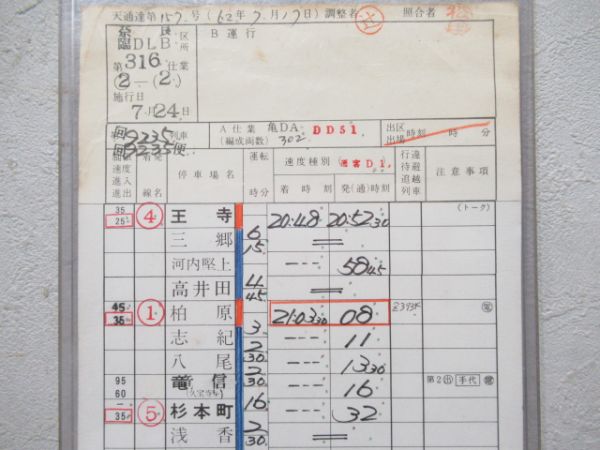 天通達第157.号(62年7月17日)調整者 照合者
奈良区
臨DLB所
B運行
第316仕業
(2-(2)
施行日
7月24日
回9235列車
回9235便
A仕業 亀DA. DD51
(編成両数) 302
出区
出場 時刻 時 分
制限
速度
進入
進出
着発
線名
停車場名
運転
時分
速度種別(通客D1.)
着時刻 発(通)時刻
行違
待避
追越
列車
注意事項
35
25
④ 王寺 20:48 20:52 30 (トーク)
6
三郷
15
河内堅上 --- 58 45
4
高井田
45
45
35
① 柏原 21:03 30 08
3
志紀 --- 11
2
八尾 30 --- 13 30
2
95
60
竜信 30 --- 16 第2 手代
(久宝寺駅)
16
35
⑤ 杉本町 --- 32
2
浅香 30